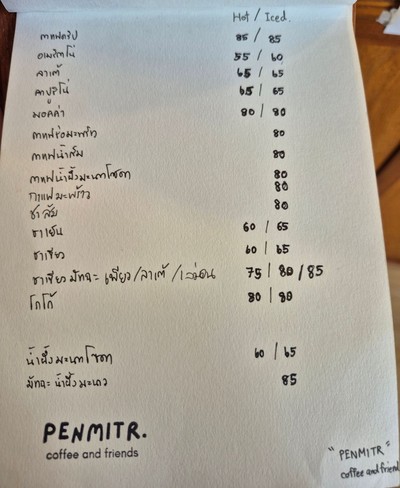 Hot / Iced.
กาแฟดริป 85 / 85
อเมริกาโน่ 55 / 60
ลาเต้ 65 / 65
คาปูชิโน่ 65 / 65
มอคค่า 80 / 80
กาแฟช่อมะพร้าว 80
กาแฟน้ำส้ม 80
กาแฟน้ำผึ้งมะนาวโซดา 80
กาแฟมะพร้าว 80
ชาส้ม 80
ชาเย็น 60 / 65
ชาเขียว 60 / 65
ชาเขียวมัทฉะ เพียว/ลาเต้/ 75 / 80 / 85
โกโก้ 80 / 80
น้ำผึ้งมะนาวโซดา 60 / 65
มัทฉะน้ำผึ้งมะนาว 85
PENMITR.
coffee and friends
"PENMITR"
coffee and friend